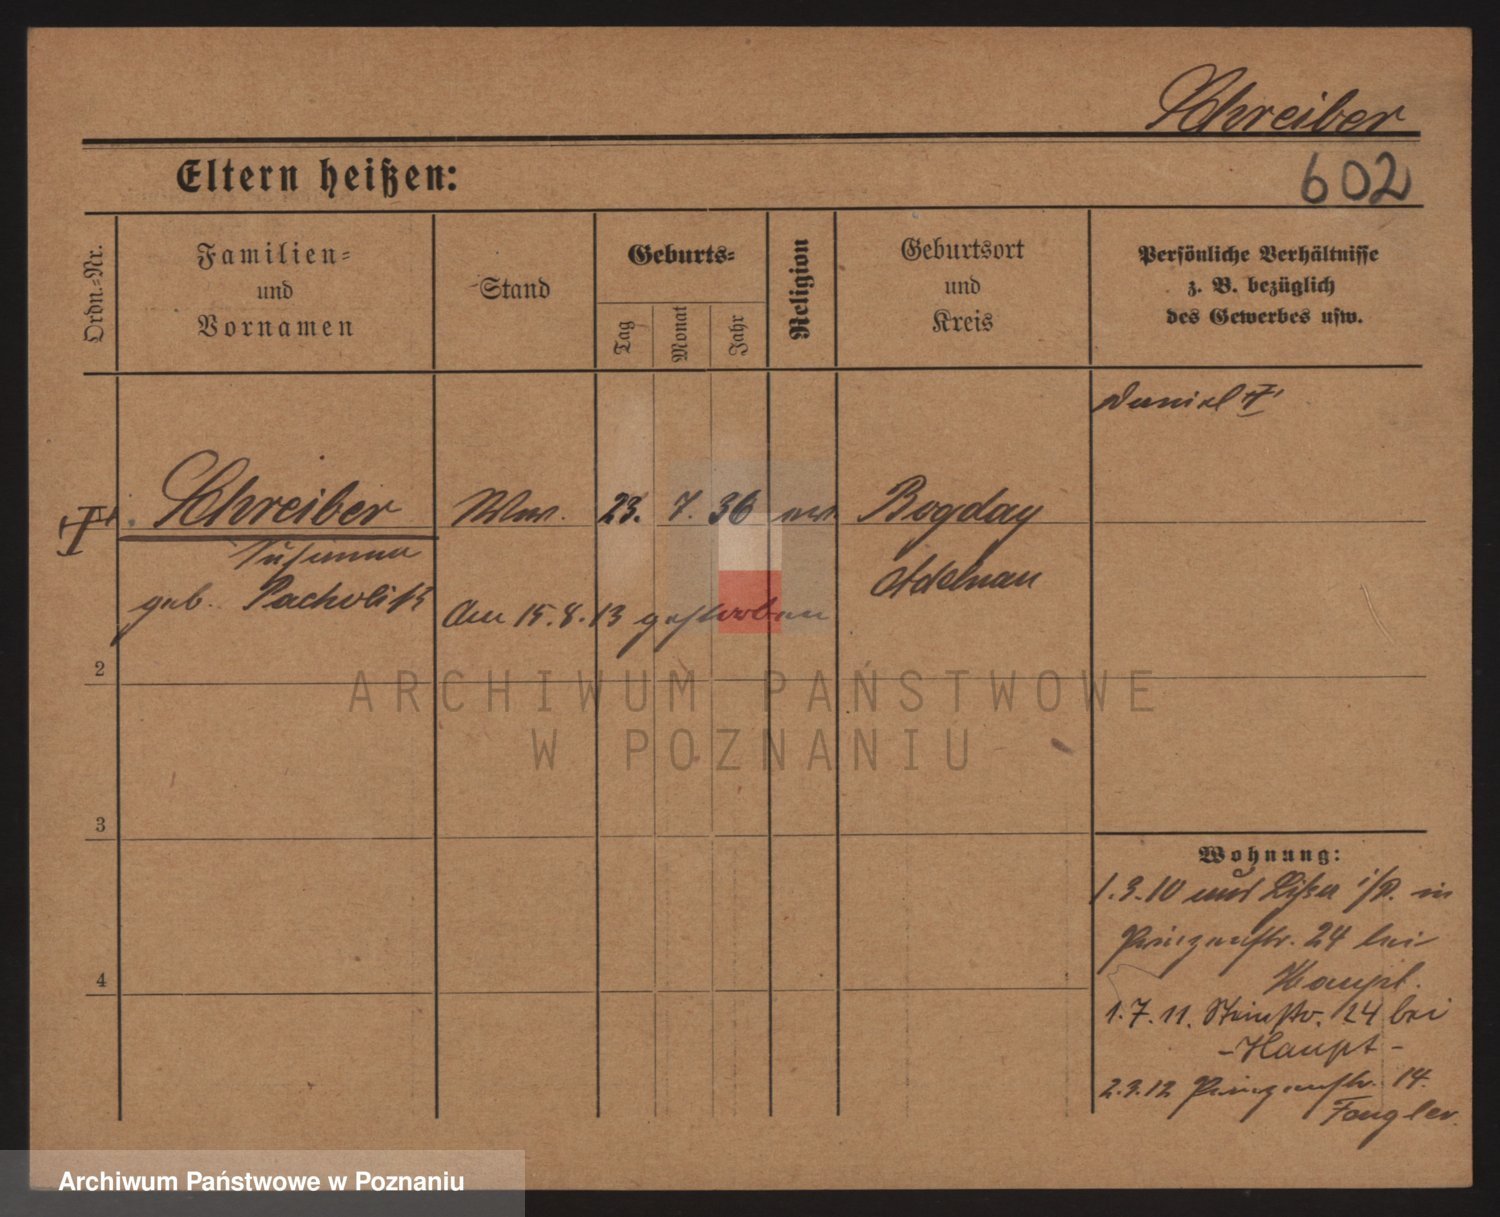 Schreiber
Eltern heißen:
602
Ordn.-Nr.
Familien-
und
Vornamen
Stand
Geburts-
Tag
Monat
Jahr
Religion
Geburtsort
und
Kreis
Persönliche Verhältnisse
z. B. bezüglich
des Gewerbes usw.
Daniel †
† Schreiber Ww. 23. 7. 36 ev. Bogday
Susanna
geb. Adelnau
Am 15.8.13 gestorben
2
ARCHIWUM PAŃSTWOWE
W POZNANIU
3
4
Wohnung:
1.3.10 aus Lissa i/P. in
Prinzenstr. 24 bei
Haupt.
1.7.11. Steinstr. 24 bei
-Haupt-
2.3.12 Prinzenstr. 14.
Archiwum Państwowe w Poznaniu